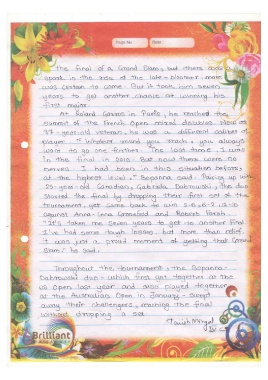 Page No.
Date
The final of a Grand Slam, but there was
spark in the eyes of the late-bloomer, more
was certain to come. But it took him seven
years to get another chance at winning his
first major.
At Roland Garros in Paris, he reached the
summit of the French Open mixed doubles. Now as
37-year-old veteran, he was a different caliber of
player. "Whatever round you reach, you always
want to go one further. The last time I was
in the final in 2010. But now there were no
nerves. I had been in this situation before,
at the highest level." Bopanna said. Pairing up with
25-year-old Canadian, Gabriela Dabrowski, the duo
started the final by dropping their first set of the
tournament, yet came back to win 2-6, 6-2, 12-10
against Anna-Lena Groenefeld and Robert Farah.
"It's taken me seven years to get to another final.
I've had some tough losses, but more than relief,
it was just a proud moment of getting that Grand
Slam," he said.
Throughout the tournament, the Bopanna-
Dabrowski duo - which first got together at the
US Open last year and also played together
at the Australian Open in January - swept
away their challengers, reaching the final
without dropping a set.
Brilliant
6